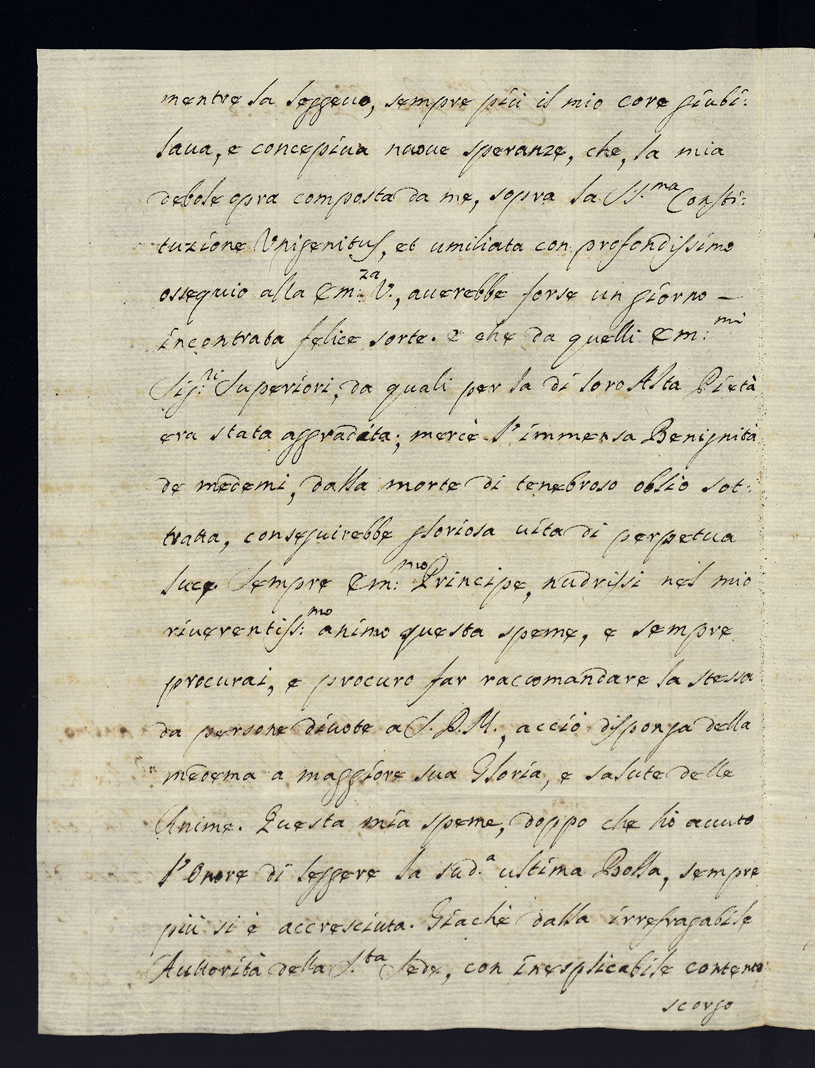 mentre la leggeuo, sempre più il mio core giubi:
laua, e concepiua nuoue speranze, che, la mia
debole opra composta da me, sopra la SS.ma Consti:
tuzione Vnigenitus, et umiliata con profondissimo
ossequio alla Em:za V., auerebbe forse un giorno –
incontrata felice sorte. E che da quelli Em:mi
Sig:ri Superiori, da quali per la di loro Alta Pietà
era stata aggradita; mercè l'immensa Benignità
de medemi, dalla morte di tenebroso oblio sot:
tratta, conseguirebbe gloriosa uita di perpetua
luce. Sempre Em:mo Principe, nudrissi nel mio
riuerentiss:mo animo questa speme, e sempre
procurai, e procuro far raccomandare la stessa
da persone diuote a S. D. M., acciò disponga della
medema a maggiore sua Gloria, e salute delle
Anime. Questa mia speme, doppo che hò auuto
l'Onore di leggere la sud.a ultima Bolla, sempre
più si è accresciuta. Giachè dalla irrefragabile
Auttorità della S.ta Sede, con inesplicabile contento,
scorgo